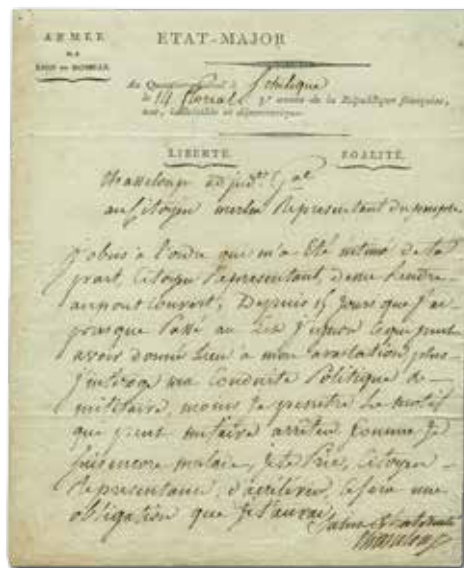 ARMÉE
ETAT-MAJOR
RHIN ET MOSELLE.
Au Quartier-général à Schilique
le 14 floréal 3e année de la République française,
une, indivisible et démocratique.
LIBERTÉ. EGALITÉ.
Chasseloup adjudt Gal
au Citoyen merlin Représentant du peuple
J'obéis à l'ordre que m'a été intimé de ta
part, Citoyen Représentant, de me rendre
Depuis 15 jours que j'ai
presque passé au Lit J'ignore ce qui peut
avoir donné Lieu à mon arrestation, plus
J'interroge ma Conduite Politique &
militaire, moins Je pénètre Le motif
que peut m'faire arrêter. Comme Je
suis encore malade, Je te Prie, Citoyen
Représentant, d'accélérer, ce sera une
obligation que Je t'aurai
Salut & fraternité
Chasseloup